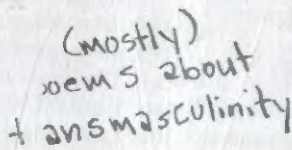 (mostly)
poems about
transmasculinity